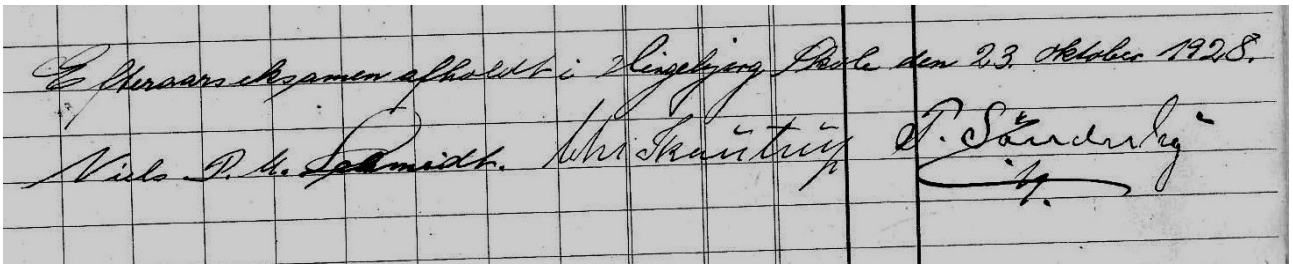 Efteraarseksamen afholdt i Vingebjerg Skole den 23. Oktober 1928.
Niels P. M. Schmidt. Chr Skautrup P. Sönderby